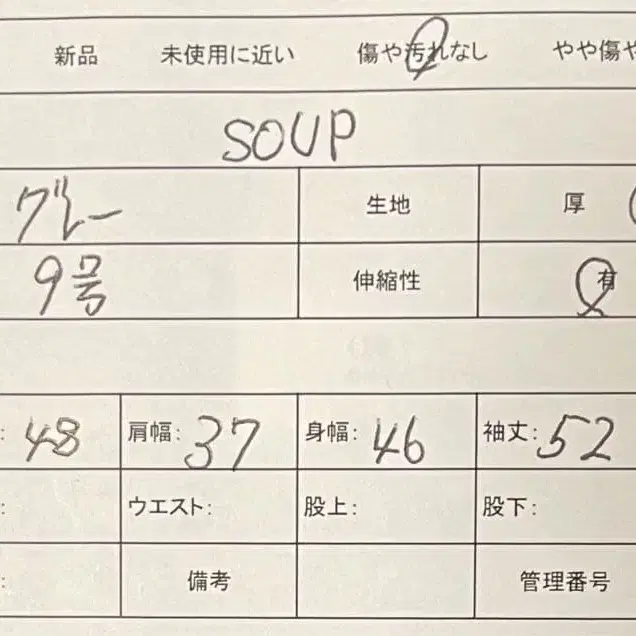 新品 未使用に近い 傷や汚れなし やや傷や
SOUP
グレー 生地 厚
9号 伸縮性 有
: 48 肩幅: 37 身幅: 46 袖丈: 52
: ウエスト: 股上: 股下:
: 備考 管理番号